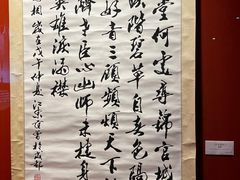 堂何處尋錦官城
映階碧草自春色隔
好音三顧頻煩天下
濟老臣心出師未捷身
英雄淚滿襟
相 歲在戊午仲夏江東